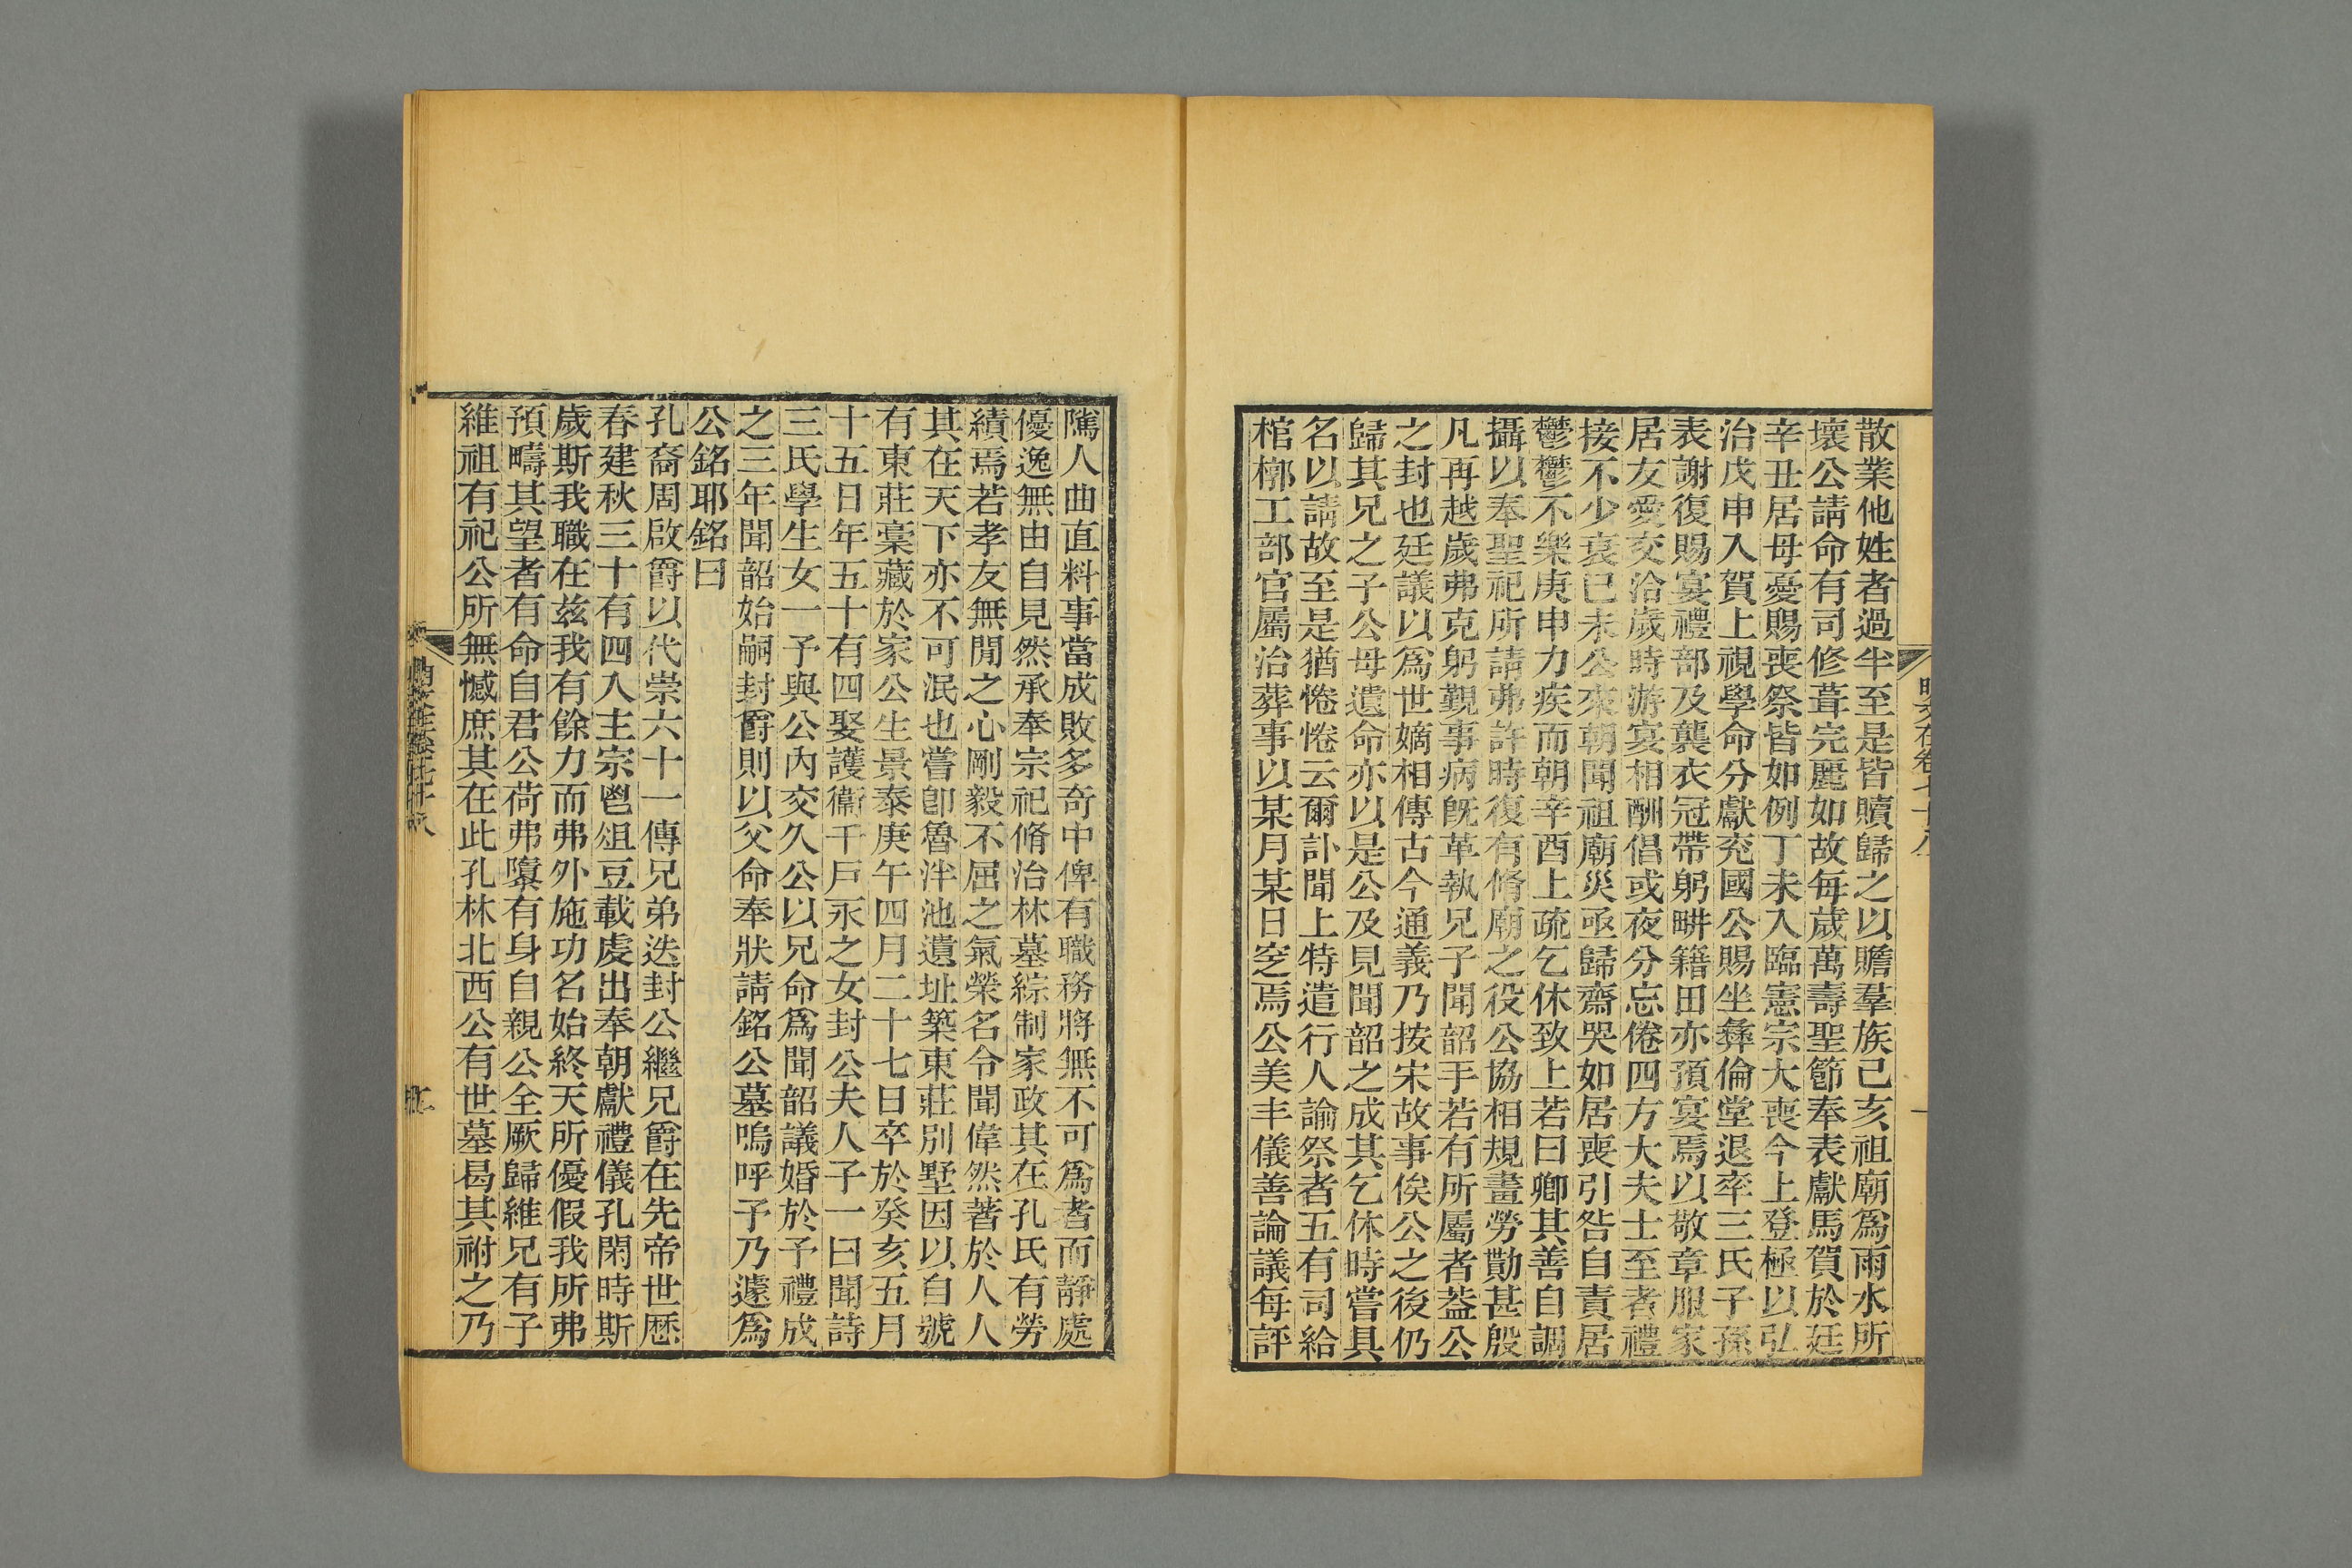 散業他姓者過半至是皆贖歸之以贍羣族己亥祖廟爲雨水所
壞公請命有司修葺完麗如故每歲萬壽聖節奉表獻馬賀於廷
辛丑居母憂賜喪祭皆如例丁未入臨憲宗大喪今上登極以弘
治戊申入賀上視學命分獻兖國公賜坐彝倫堂退率三氏子孫
表謝復賜宴禮部及襲衣冠帶躬畊籍田亦預宴焉以敬章服家
居友愛交洽歲時游宴相酬倡或夜分忘倦四方大夫士至者禮
接不少衰已未公來朝聞祖廟災亟歸齋哭如居喪引咎自責居
鬱鬱不樂庚申力疾而朝辛酉上疏乞休致上若曰卿其善自調
攝以奉聖祀所請弗許時復有脩廟之役公協相規畫勞勩甚殷
凡再越歲弗克躬覲事病旣革執兄子聞韶手若有所屬者葢公
之封也廷議以爲世嫡相傳古今通義乃按宋故事俟公之後仍
歸其兄之子公母遺命亦以是公及見聞韶之成其乞休時嘗具
名以請故至是猶惓惓云爾訃聞上特遣行人諭祭者五有司給
棺槨工部官屬治葬事以某月某日窆焉公美丰儀善論議每評
明文在卷七十八
隲人曲直料事當成敗多奇中俾有職務將無不可爲者而靜處
優逸無由自見然承奉宗祀脩治林墓綜制家政其在孔氏有勞
績焉若孝友無閒之心剛毅不屈之氣榮名令聞偉然著於人人
其在天下亦不可泯也嘗卽魯泮池遺址築東莊別墅因以自號
有東莊稾藏於家公生景泰庚午四月二十七日卒於癸亥五月
十五日年五十有四娶護衞千戶永之女封公夫人子一曰聞詩
三氏學生女一予與公內交久公以兄命爲聞韶議婚於予禮成
之三年聞韶始嗣封爵則以父命奉狀請銘公墓嗚呼予乃遽爲
公銘耶銘曰
孔裔周啟爵以代崇六十一傳兄弟迭封公繼兄爵在先帝世歷
春建秋三十有四入主宗鬯俎豆載虔出奉朝獻禮儀孔閑時斯
歲斯我職在兹我有餘力而弗外施功名始終天所優假我所弗
預疇其望者有命自君公荷弗隳有身自親公全厥歸維兄有子
維祖有祀公所無憾庶其在此孔林北西公有世墓曷其祔之乃